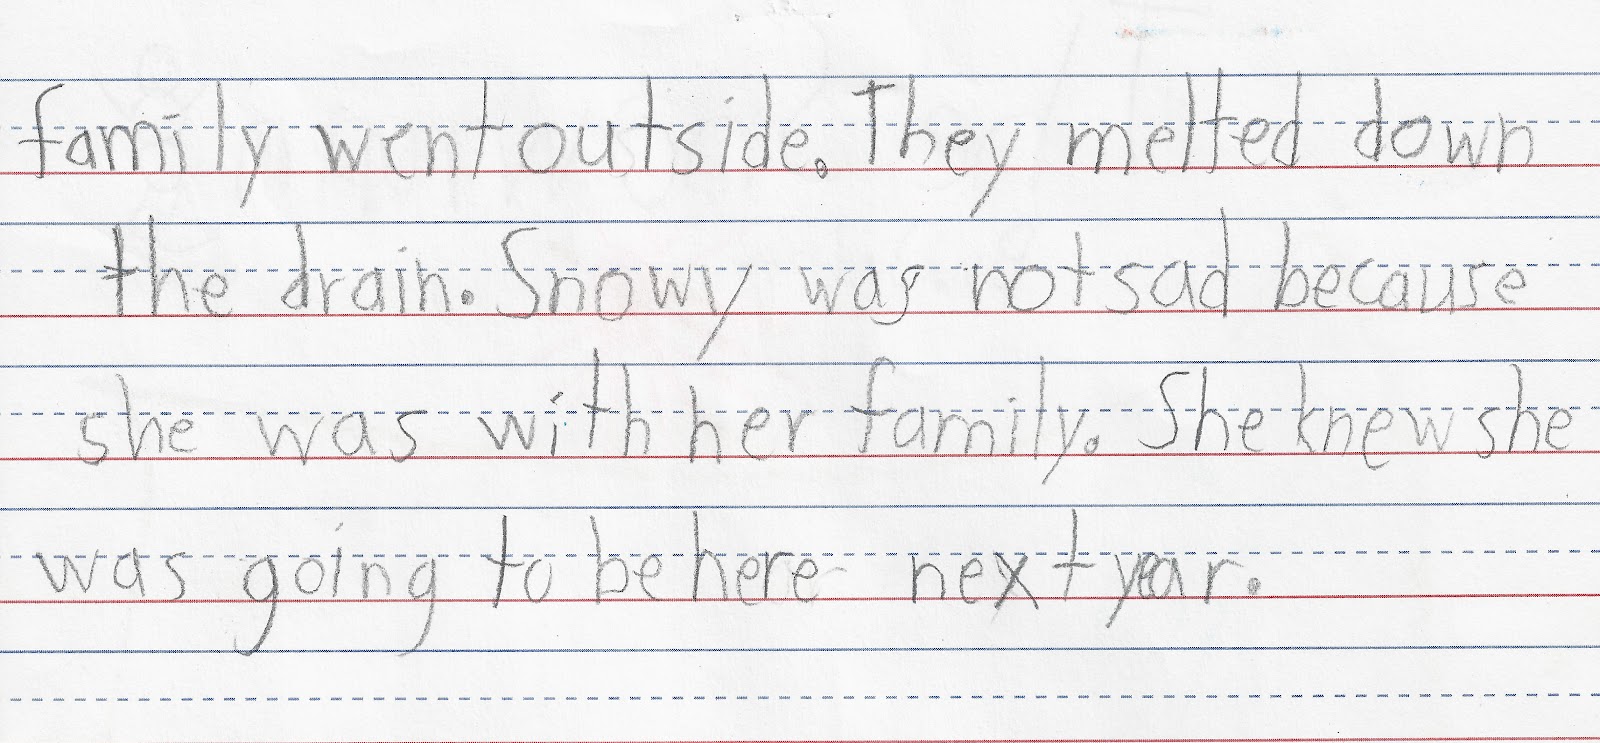 family went outside. They melted down
the drain. Snowy was not sad because
she was with her family. She knew she
was going to be here next year.